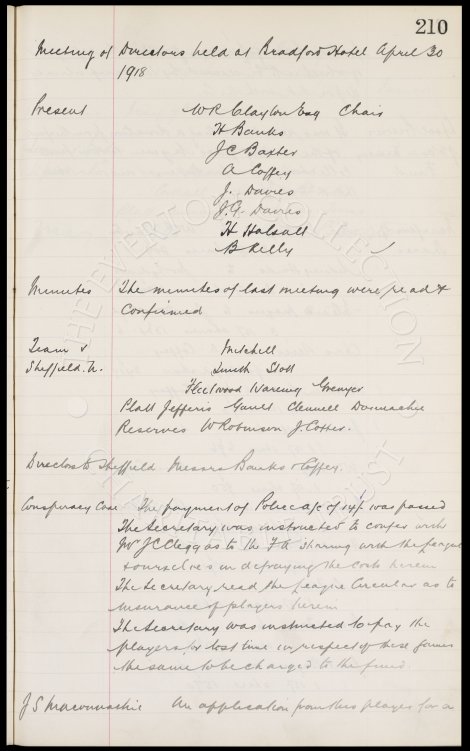 210
Meeting of Directors held at Bradford Hotel April 30
1918
Present W R Clayton Esq Chair
H Banks
J C Baxter
A Coffey
J. Davies
J. G. Davies
H Halsall
B Kelly
Minutes The minutes of last meeting were read &
Confirmed
Team v Mitchell
Sheffield U. Smith Stott
Fleetwood Wareing Grenyer
Platt Jefferis Gault Clennell Donnachie
Reserves W Robinson J. Cotter.
Directors to Sheffield Messrs Banks & Coffey.
Conspiracy Case The payment of Police a/c of 14/- was passed
The Secretary was instructed to confer with
Mr J C Clegg as to the F A sharing with the League
& ourselves in defraying the costs herein
The Secretary read the League Circular as to
Insurance of players herein
The Secretary was instructed to pay the
players for lost time in respect of these games
the same to be charged to the fund.
J S Maconnachie An application from this player for a
THE EVERTON COLLECTION
CHARITABLE TRUST